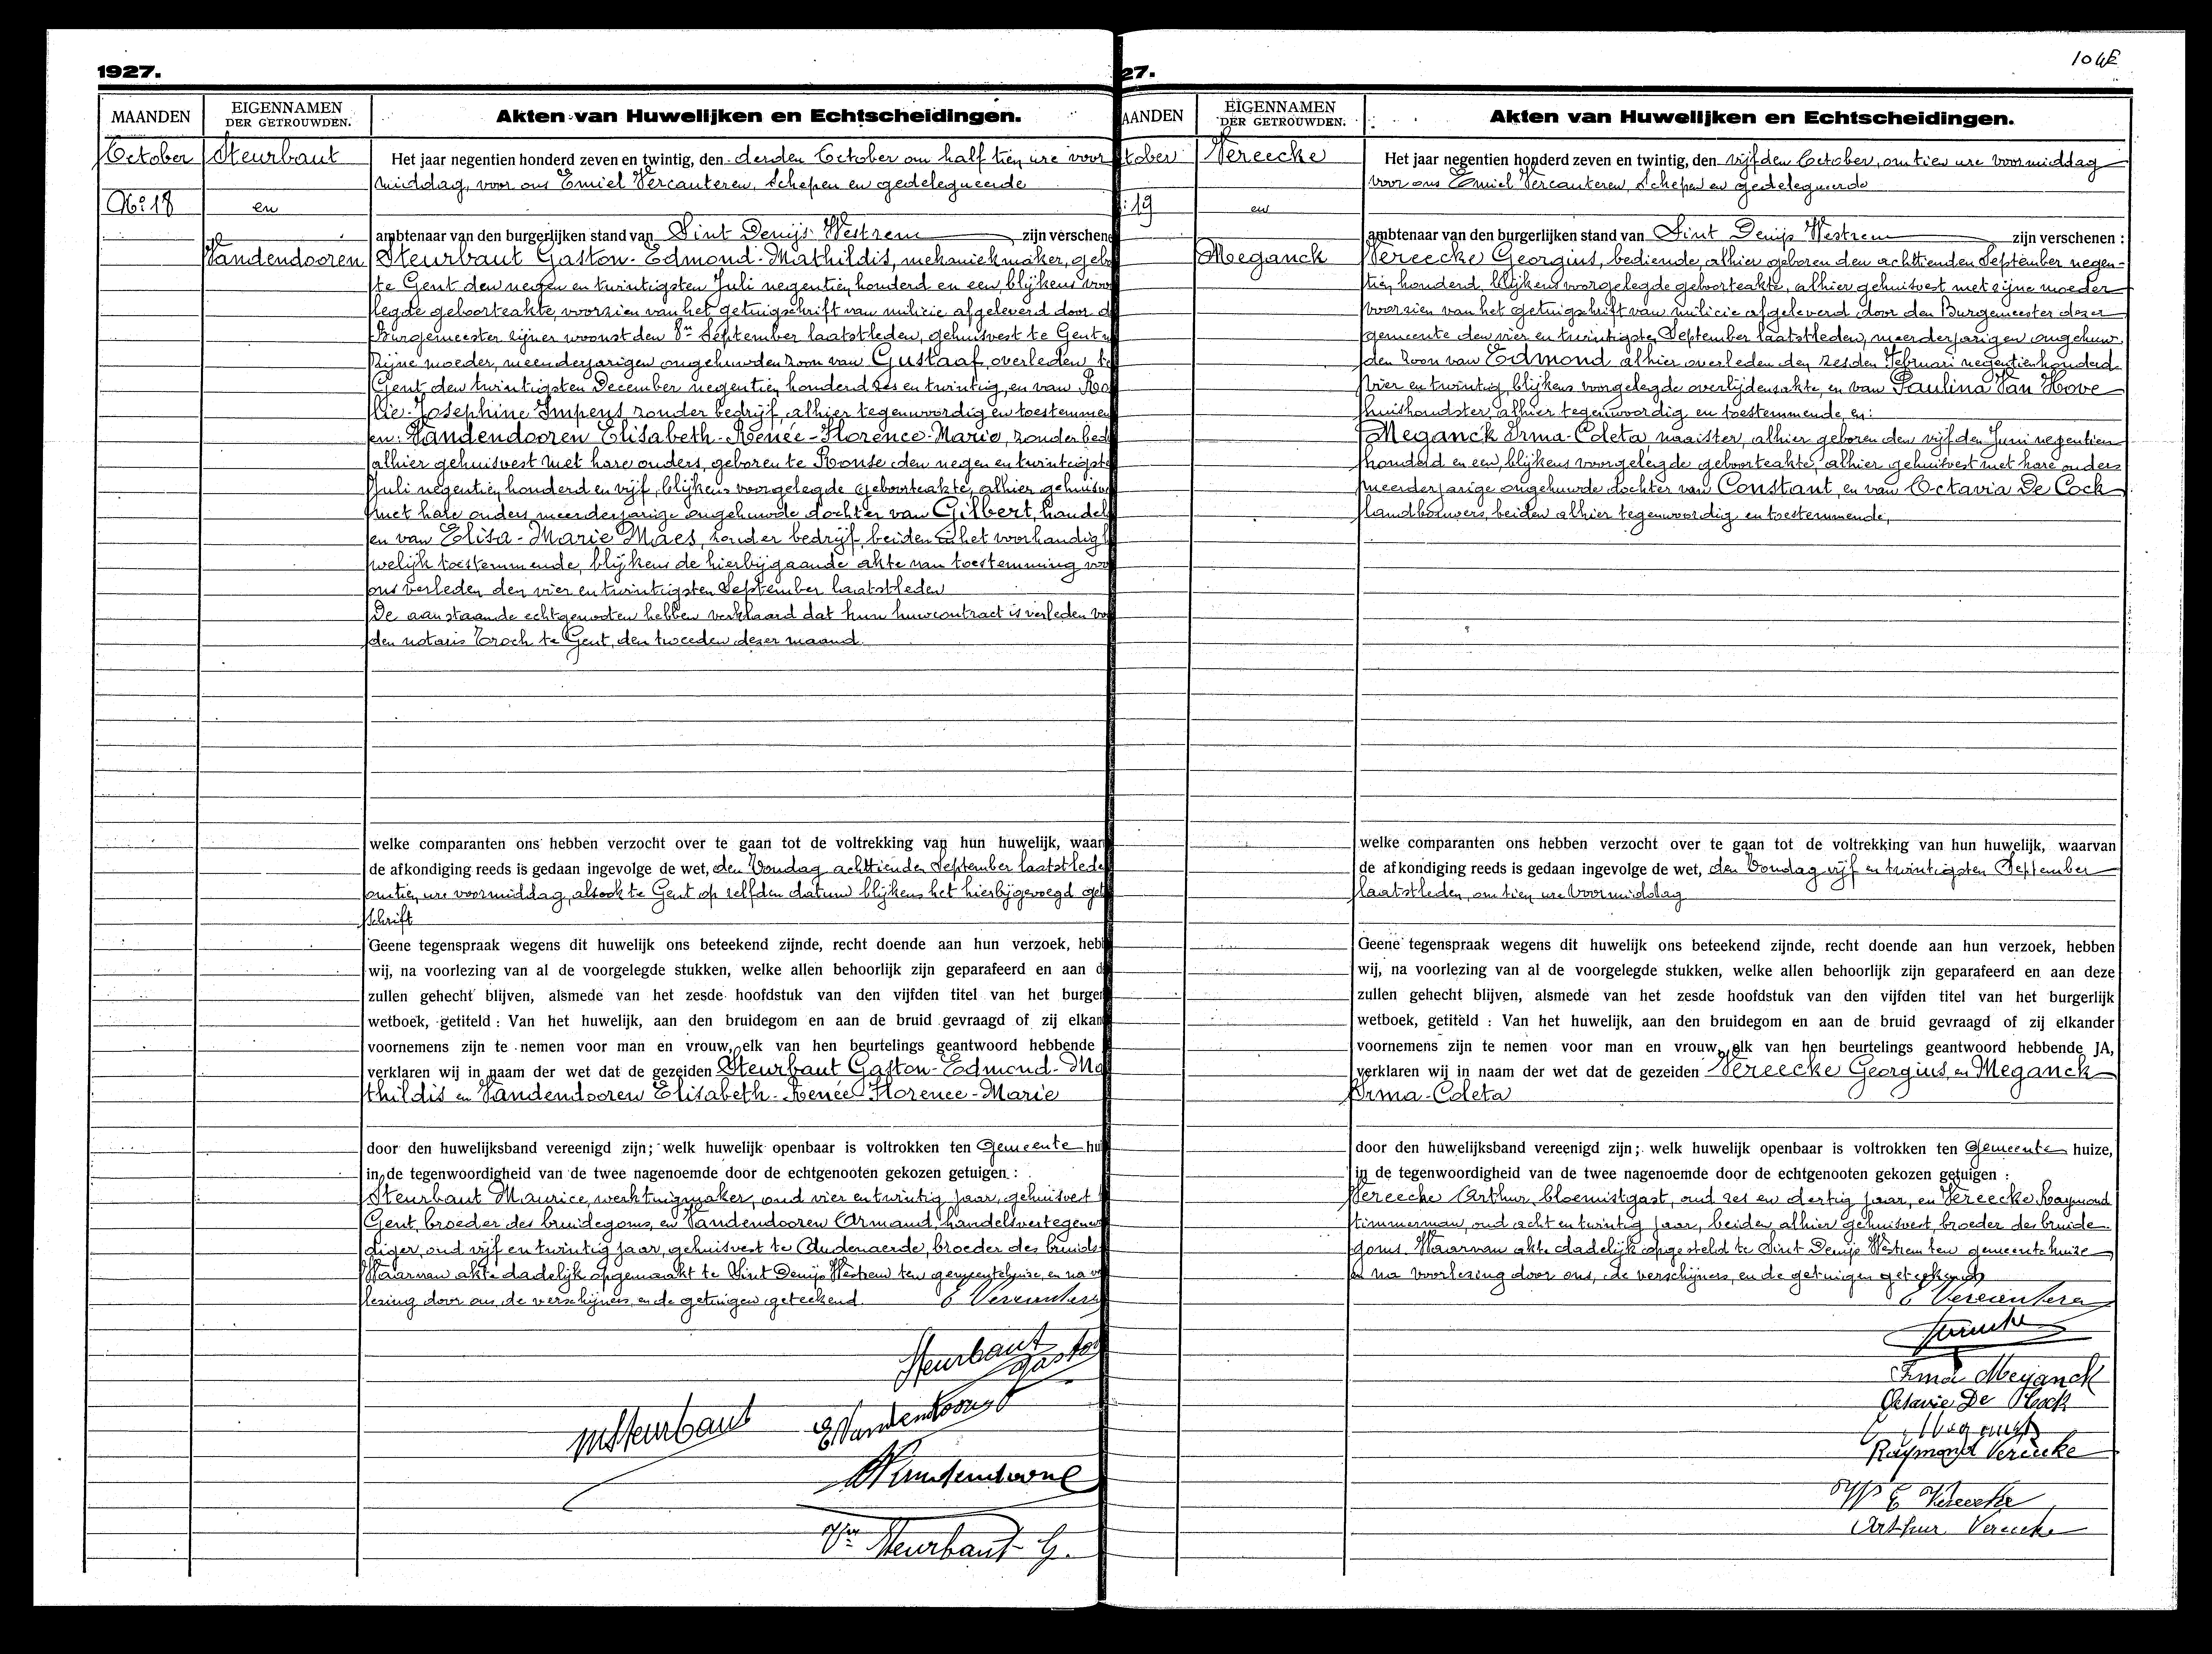 1927.
MAANDEN
EIGENNAMEN
DER GETROUWDEN.
Akten van Huwelijken en Echtscheidingen.
October
Steurbaut
Het jaar negentien honderd zeven en twintig, den derden October om half tien ure voor
middag, voor ons Emiel Vercauteren, Schepen en gedelegueerde
No: 18
en
ambtenaar van den burgerlijken stand van Sint Denijs Westrem zijn verschene
Vandendooren
Steurbaut Gaston-Edmond-Mathildis, mekaniekmaker, geb
te Gent den negen en twintigsten Juli negentien honderd en een, blijkens voor
legde geboorteakte, voorzien van het getuigschrift van milicie afgeleverd door d
Burgemeester zijner woonst den 8n September laatstleden, gehuisvest te Gent
zijne moeder, meerderjarigen ongehuwden zoon van Gustaaf, overleden te
Gent den twintigsten December negentien honderd zes en twintig, en van Ro
lie-Josephine Impens, zonder bedrijf, alhier tegenwoordig en toestemmen
en: Vandendooren Elisabeth-Renée-Florence-Marie, zonder bed
alhier gehuisvest met hare ouders, geboren te Ronse den negen en twintigste
Juli negentien honderd en vijf, blijkens voorgelegde geboorteakte, alhier gehuisv
met hare ouders meerderjarige ongehuwde dochter van Gilbert, handel
en van Elisa-Marie Maes, zonder bedrijf, beiden het voorhandig
welijk toestemmende, blijkens de hierbijgaande akte van toestemming voo
ons verleden den vier en twintigsten September laatstleden
De aanstaande echtgenooten hebben verklaard dat hun huwcontract is verleden vo
den notaris Croch te Gent, den tweeden dezer maand.
welke comparanten ons hebben verzocht over te gaan tot de voltrekking van hun huwelijk, waar
de afkondiging reeds is gedaan ingevolge de wet, den Zondag achttienden September laatstlede
om tien ure voormiddag, alsook te Gent op zelfden datum blijkens het hierbijgevoegd get
schrift
Geene tegenspraak wegens dit huwelijk ons beteekend zijnde, recht doende aan hun verzoek, heb
wij, na voorlezing van al de voorgelegde stukken, welke allen behoorlijk zijn geparafeerd en aan d
zullen gehecht blijven, alsmede van het zesde hoofdstuk van den vijfden titel van het burger
wetboek, getiteld : Van het huwelijk, aan den bruidegom en aan de bruid gevraagd of zij elkan
voornemens zijn te nemen voor man en vrouw, elk van hen beurtelings geantwoord hebbende
verklaren wij in naam der wet dat de gezeiden Steurbaut Gaston-Edmond-Ma
thildis en Vandendooren Elisabeth-Renée-Florence-Marie
door den huwelijksband vereenigd zijn; welk huwelijk openbaar is voltrokken ten Gemeente hui
in de tegenwoordigheid van de twee nagenoemde door de echtgenooten gekozen getuigen :
Steurbaut Maurice, werktuigmaker, oud vier en twintig jaar, gehuisvest
Gent, broeder des bruidegoms, en Vandendooren Armand, handelsvertegenwo
diger, oud vijf en twintig jaar, gehuisvest te Audenaerde, broeder des bruids
Waarvan akte dadelijk opgemaakt te Sint Denijs Westrem ten gemeentehuize, en na vo
lezing door ons, de verschijners, en de getuigen geteekend. E Vercauteren
Steurbaut
Gaston
MSteurbaut
EVandendooren
AVandendooren
Steurbaut-G.
27.
104E
AANDEN
EIGENNAMEN
DER GETROUWDEN.
Akten van Huwelijken en Echtscheidingen.
tober
Vereecke
Het jaar negentien honderd zeven en twintig, den vijfden October, om tien ure voormiddag
voor ons Emiel Vercauteren, Schepen en gedelegueerde
: 19
en
ambtenaar van den burgerlijken stand van Sint Denijs Westrem zijn verschenen :
Meganck
Vereecke Georgius, bediende, alhier geboren den achttienden September negen-
tien honderd, blijkens voorgelegde geboorteakte, alhier gehuisvest met zijne moeder
voorzien van het getuigschrift van milicie afgeleverd door den Burgemeester dezer
gemeente den vier en twintigsten September laatstleden, meerderjarigen ongehuw
den Zoon van Edmond alhier overleden den zesden Februari negentienhonderd
vier en twintig, blijkens voorgelegde overlijdensakte, en van Paulina Van Hove
huishoudster, alhier tegenwoordig en toestemmende, en:
Meganck Irma-Coleta naaister, alhier geboren den vijfden Juni negentien
honderd en een, blijkens voorgelegde geboorteakte, alhier gehuisvest met hare ouders
meerderjarige ongehuwde dochter van Constant, en van Octavia De Cock
landbouwers, beiden alhier tegenwoordig en toestemmende,
welke comparanten ons hebben verzocht over te gaan tot de voltrekking van hun huwelijk, waarvan
de afkondiging reeds is gedaan ingevolge de wet, den Zondag vijf en twintigsten September
laatstleden, om tien ure voormiddag
Geene tegenspraak wegens dit huwelijk ons beteekend zijnde, recht doende aan hun verzoek, hebben
wij, na voorlezing van al de voorgelegde stukken, welke allen behoorlijk zijn geparafeerd en aan deze
zullen gehecht blijven, alsmede van het zesde hoofdstuk van den vijfden titel van het burgerlijk
wetboek, getiteld : Van het huwelijk, aan den bruidegom en aan de bruid gevraagd of zij elkander
voornemens zijn te nemen voor man en vrouw, elk van hen beurtelings geantwoord hebbende JA,
verklaren wij in naam der wet dat de gezeiden Vereecke Georgius, en Meganck
Irma-Coleta
door den huwelijksband vereenigd zijn; welk huwelijk openbaar is voltrokken ten Gemeente huize,
in de tegenwoordigheid van de twee nagenoemde door de echtgenooten gekozen getuigen :
Vereecke Arthur, bloemistgast, oud zes en dertig jaar, en Vereecke Raymond
timmerman, oud acht en twintig jaar, beiden alhier gehuisvest, broeder des bruide-
goms. Waarvan akte dadelijk opgesteld te Sint Denijs Westrem ten gemeentehuize
en na voorlezing door ons, de verschijners, en de getuigen geteekend
E Vercauteren
Irma Meganck
Octavie De Cock
Raymond Vereecke
E Vereecke
Arthur Vereecke